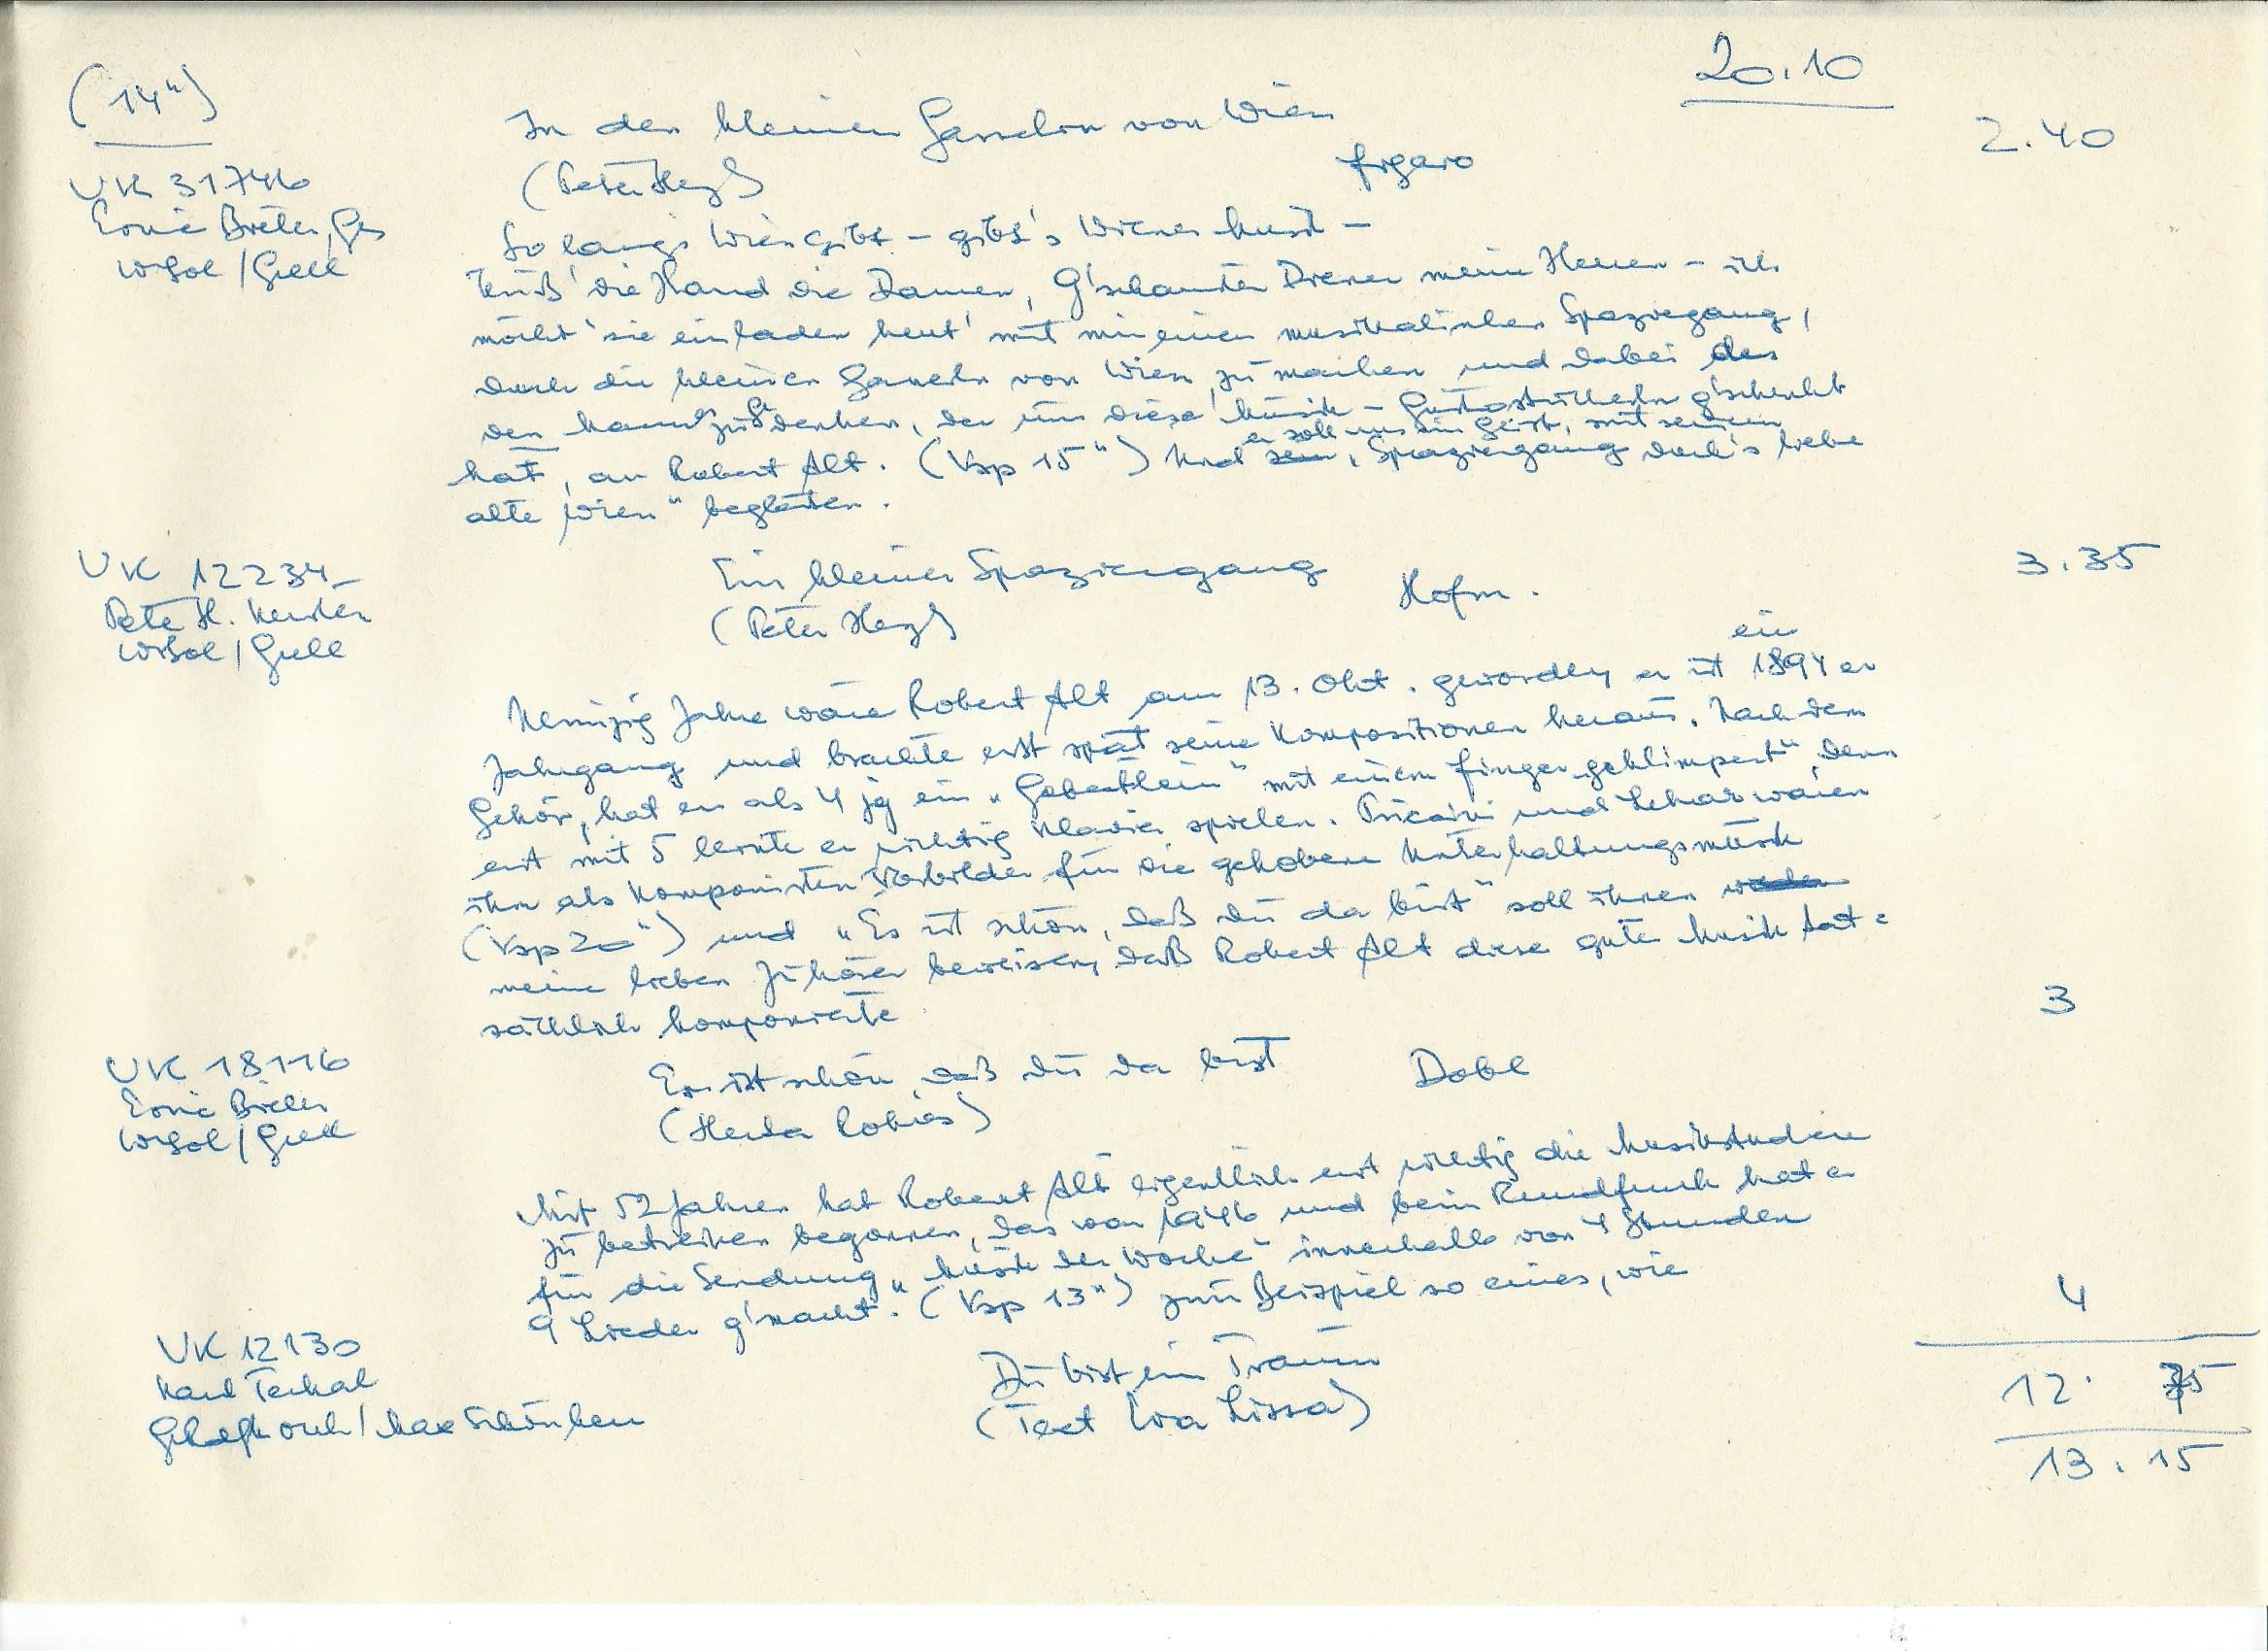 20.10
(14")
In den kleinen Gasserln von Wien
2.40
(Peter Herz) Figaro
UK 31746
Ernie Bieler, Ges
WrSol / Grell
So langs Wien gibt – gibt's Wiener Musik –
Küß' die Hand die Damen, G'schamster Diener meine Herren – ich
möcht' sie einladen heut' mit mir einen musikalischen Spaziergang,
durch die kleinen Gasserln von Wien zu machen und dabei des
den Manns zu Gdenken, der uns diese Musik-Gustostückerln g'schenkt
er soll uns im Geist, mit seinem
hat, an Robert Alt. (Vsp 15") Und sein „Spaziergang durch's liebe
alte Wien" begleiten.
UK 12234
Ein kleiner Spaziergang
3.35
Peter H. Kersten
(Peter Herz) Hofm.
WrSol / Grell
ein
Neunzig Jahre wäre Robert Alt am 13. Okt. geworden, er ist 1894 er
Jahrgang und brachte erst spät seine Kompositionen heraus. Nach dem
Gehör, hat er als 4 jg ein „Gebetlein" mit einem Finger „geklimpert" denn
erst mit 5 lernte er richtig Klavier spielen. Puccini und Lehar waren
ihm als Komponisten Vorbilder für die gehobene Unterhaltungsmusik
(Vsp 20") und „Es ist schön, daß du da bist" soll ihnen
meine lieben Zuhörer beweisen, daß Robert Alt diese gute Musik tat=
sächlich komponierte.
3
UK 18116
Es ist schön daß du da bist Dobl
Ernie Bieler
(Herta Robies)
WrSol / Grell
Mit 52 Jahren hat Robert Alt eigentlich erst richtig die Musikstudien
zu betreiben begonnen, das war 1946 und beim Rundfunk hat er
für die Sendung „Musik der Woche" innerhalb von 4 Stunden
9 Lieder g'macht. (Vsp 13") zum Beispiel so eines, wie
4
UK 12130
Du bist ein Traum
12. 75
Karl Terkal
(Text Eva Lissa)
orch / Max Schönherr
13.15